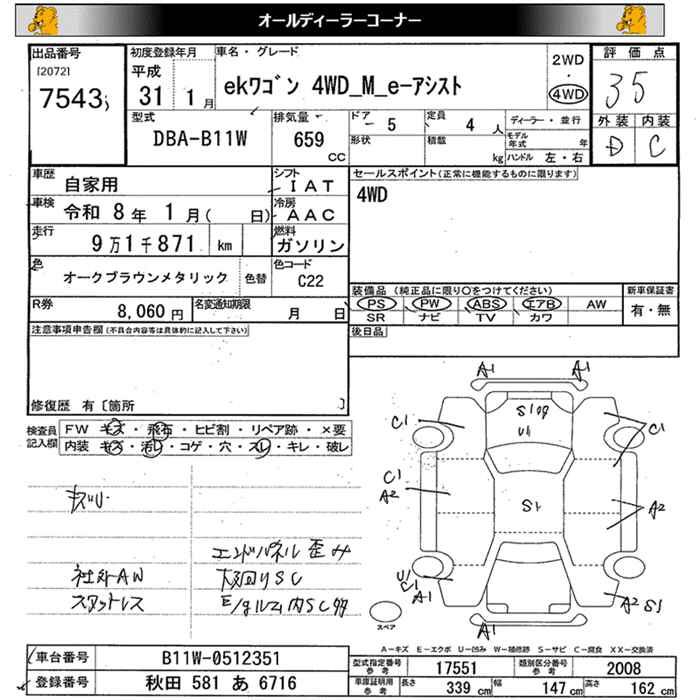 オールディーラーコーナー
出品番号
[2072]
7543
初度登録年月
平成
31 1月
車名・グレード
ekワゴン 4WD_M_e-アシスト
2WD
・
4WD
評価点
35
外装 内装
D C
型式
DBA-B11W
排気量
659
CC
ドア
5
定員
4 人
形状
積載
kg
ディーラー・並行
モデル年式 年
ハンドル 左・右
車歴
自家用
シフト
IAT
車検
令和 8年 1月( 日)
冷房
AAC
走行
9万1千871 km
燃料
ガソリン
色
オークブラウンメタリック
色替
色コード
C22
R券
8,060円
名変通知期限
月 日
セールスポイント(正常に機能するものに限ります)
4WD
装備品(純正品に限り○をつけてください)
PS PW ABS エアB AW
SR ナビ TV カワ
新車保証書
有・無
後日品
注意事項申告欄(不具合内容等は具体的に記入して下さい)
修復歴 有〔箇所 〕
検査員記入欄
FW キズ・飛石・ヒビ割・リペア跡・×要
内装 キズ・汚レ・コゲ・穴・スレ・キレ・破レ
社外AW
スタットレス
エンドパネル歪み
下回りSC
E/gルーム内SC多
A1 A1
C1 C1
S1 U1
C1
A2 A2
S1
U1
C1
A1 A1
A2 S1
スペア
A-キズ E-エクボ U-凹み W-補修跡 S-サビ C-腐食 XX-交換済
車台番号
B11W-0512351
登録番号
秋田 581 あ 6716
型式指定番号
参考
17551
類別区分番号
参考
2008
車庫証明用
参考
長さ 339 cm 幅 147 cm 高さ 162 cm